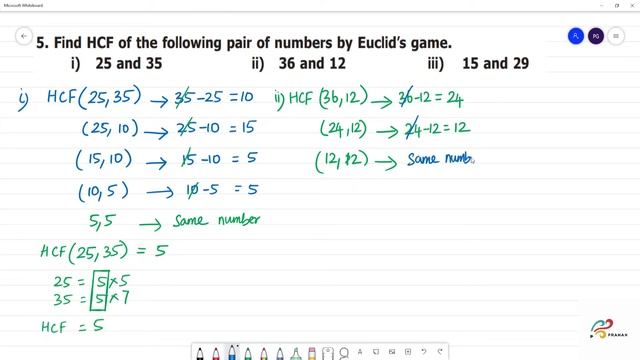 Microsoft Whiteboard
5. Find HCF of the following pair of numbers by Euclid's game.
i) 25 and 35 ii) 36 and 12 iii) 15 and 29
PG
i) HCF (25,35) → 35-25 = 10
(25,10) → 25-10 = 15
(15,10) → 15-10 = 5
(10,5) → 10-5 = 5
5,5 → Same number
HCF (25,35) = 5
25 = 5×5
35 = 5×7
HCF = 5
ii) HCF (36,12) → 36-12 = 24
(24,12) → 24-12 = 12
(12,12) → Same numb
PRAHAN